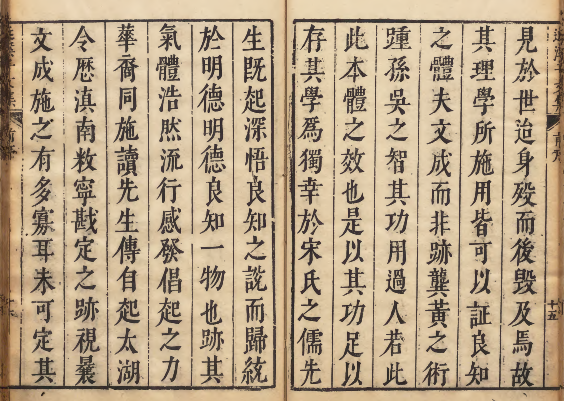 見於世迨身殁而後毀及焉故
其理學所施用皆可以証良知
之體夫文成而非跡龔黃之術
踵孫吳之智其功用過人若此
此本體之效也是以其功足以
存其學爲獨幸於宋氏之儒先
生旣起深悟良知之說而歸統
於明德明德良知一物也跡其
氣體浩然流行感發倡起之力
華裔同施讀先生傳自起太湖
令歷滇南敉寧戡定之跡視曩
文成施之有多寡耳未可定其
十五